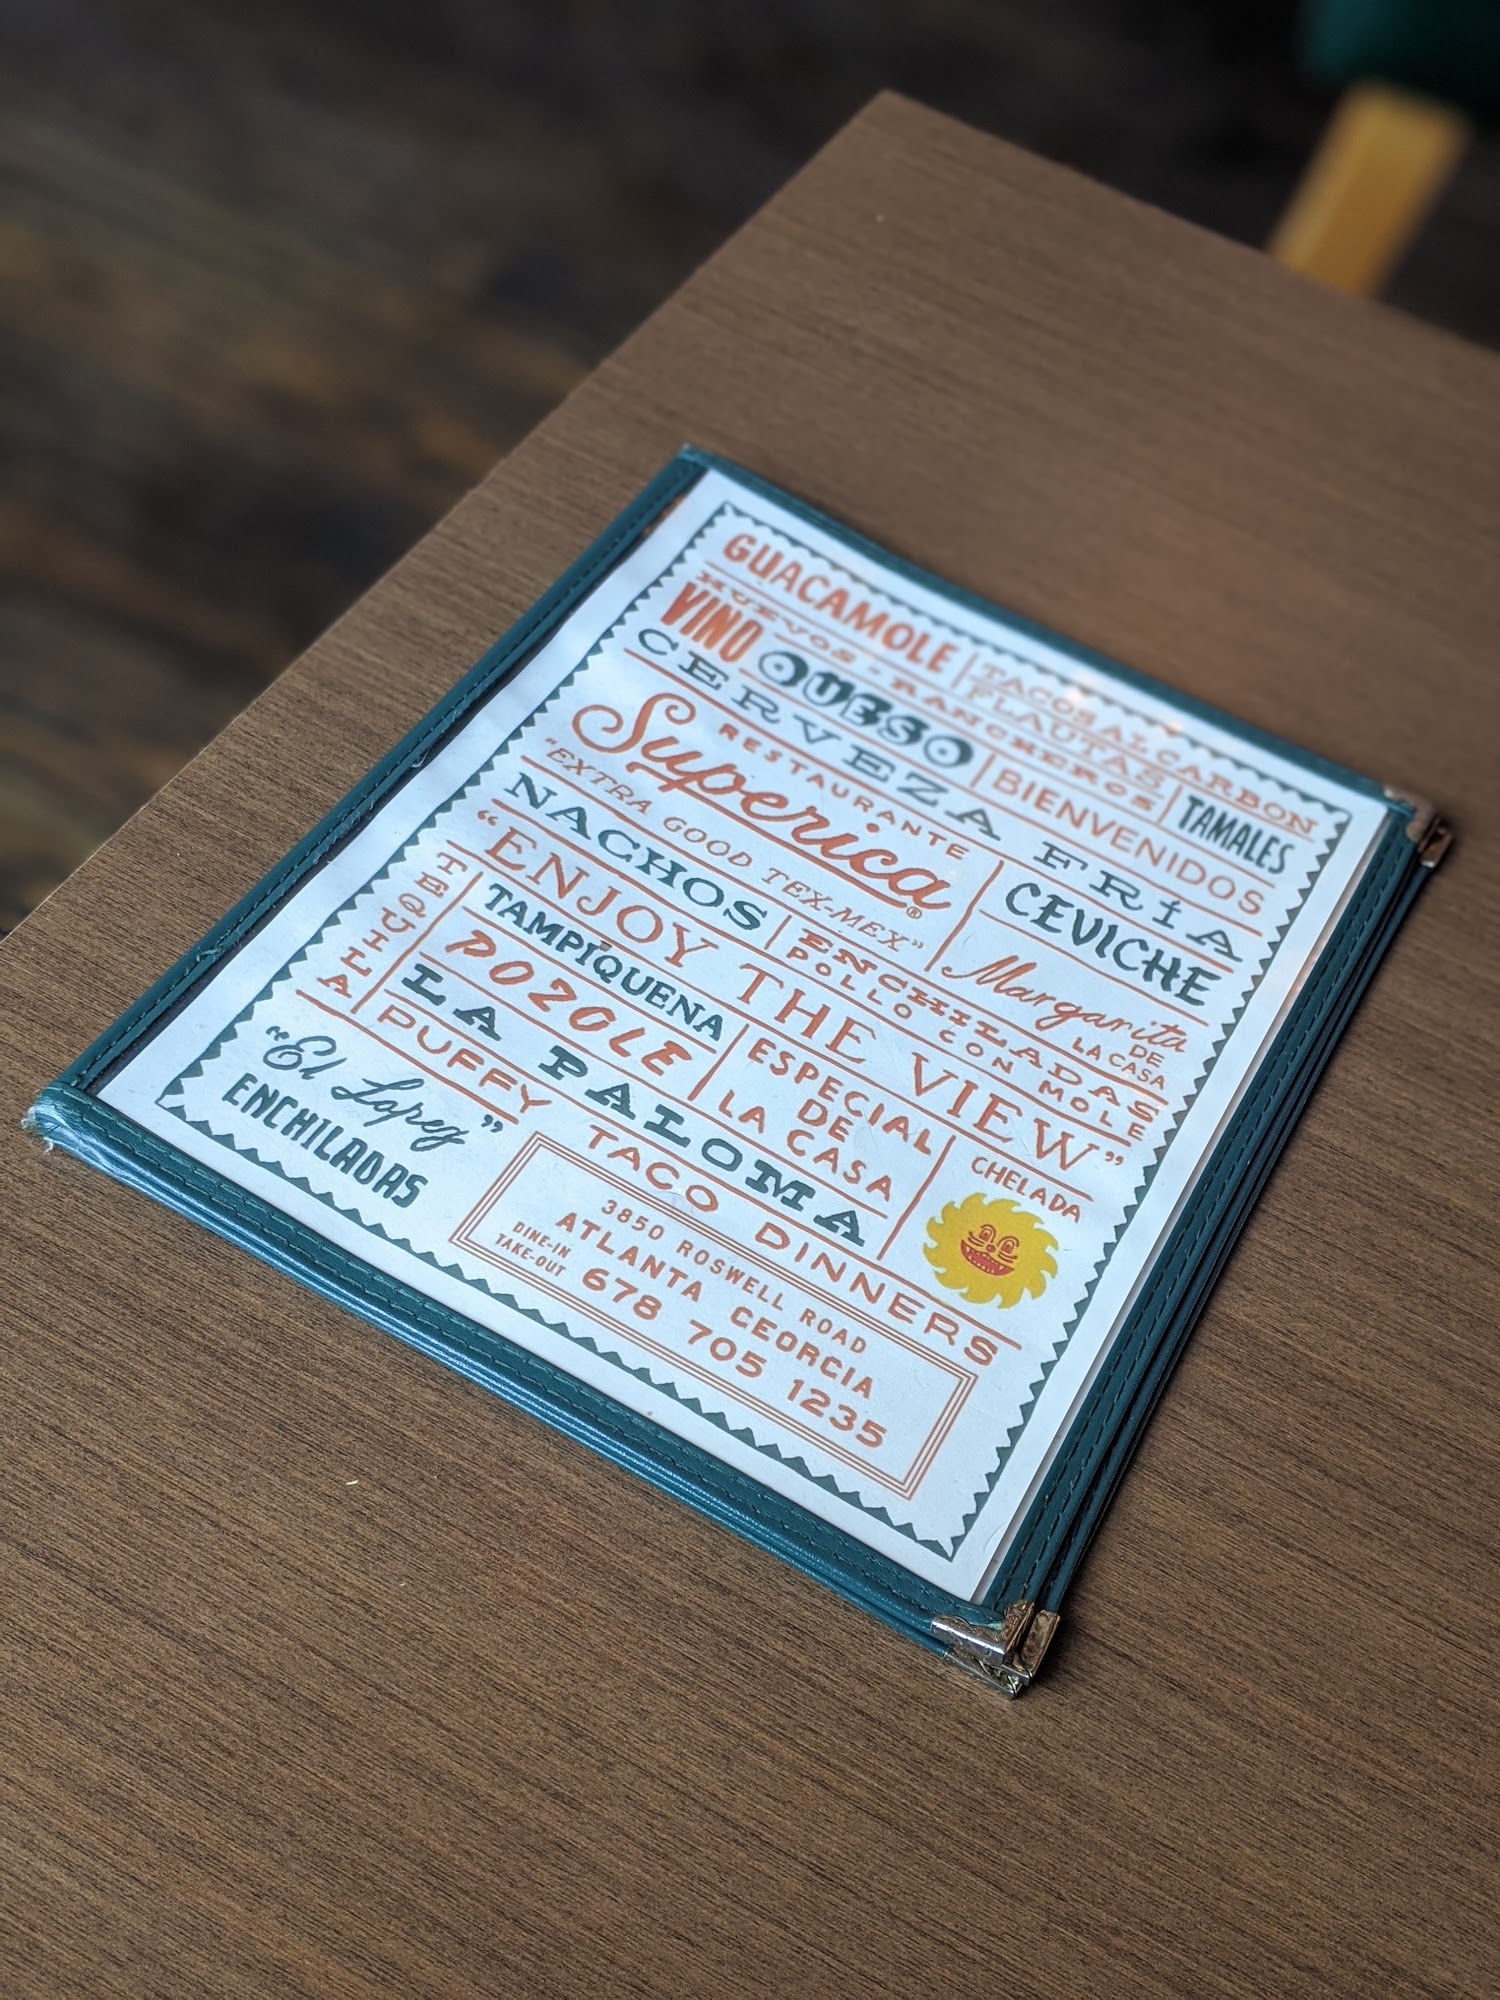 GUACAMOLE
TACOS AL CARBON
FLAUTAS
HUEVOS • RANCHEROS
TAMALES
VINO
QUESO
BIENVENIDOS
CERVEZA FRÍA
RESTAURANTE
Superica®
"EXTRA GOOD TEX-MEX"
CEVICHE
Margarita
DE
LA CASA
NACHOS
ENCHILADAS
POLLO CON MOLE
"ENJOY THE VIEW"
TEQUILA
TAMPIQUENA
POZOLE
ESPECIAL
DE
LA CASA
CHELADA
LA PALOMA
PUFFY TACO DINNERS
"El Lopez"
ENCHILADAS
3850 ROSWELL ROAD
ATLANTA GEORGIA
DINE-IN
TAKE-OUT
678 705 1235